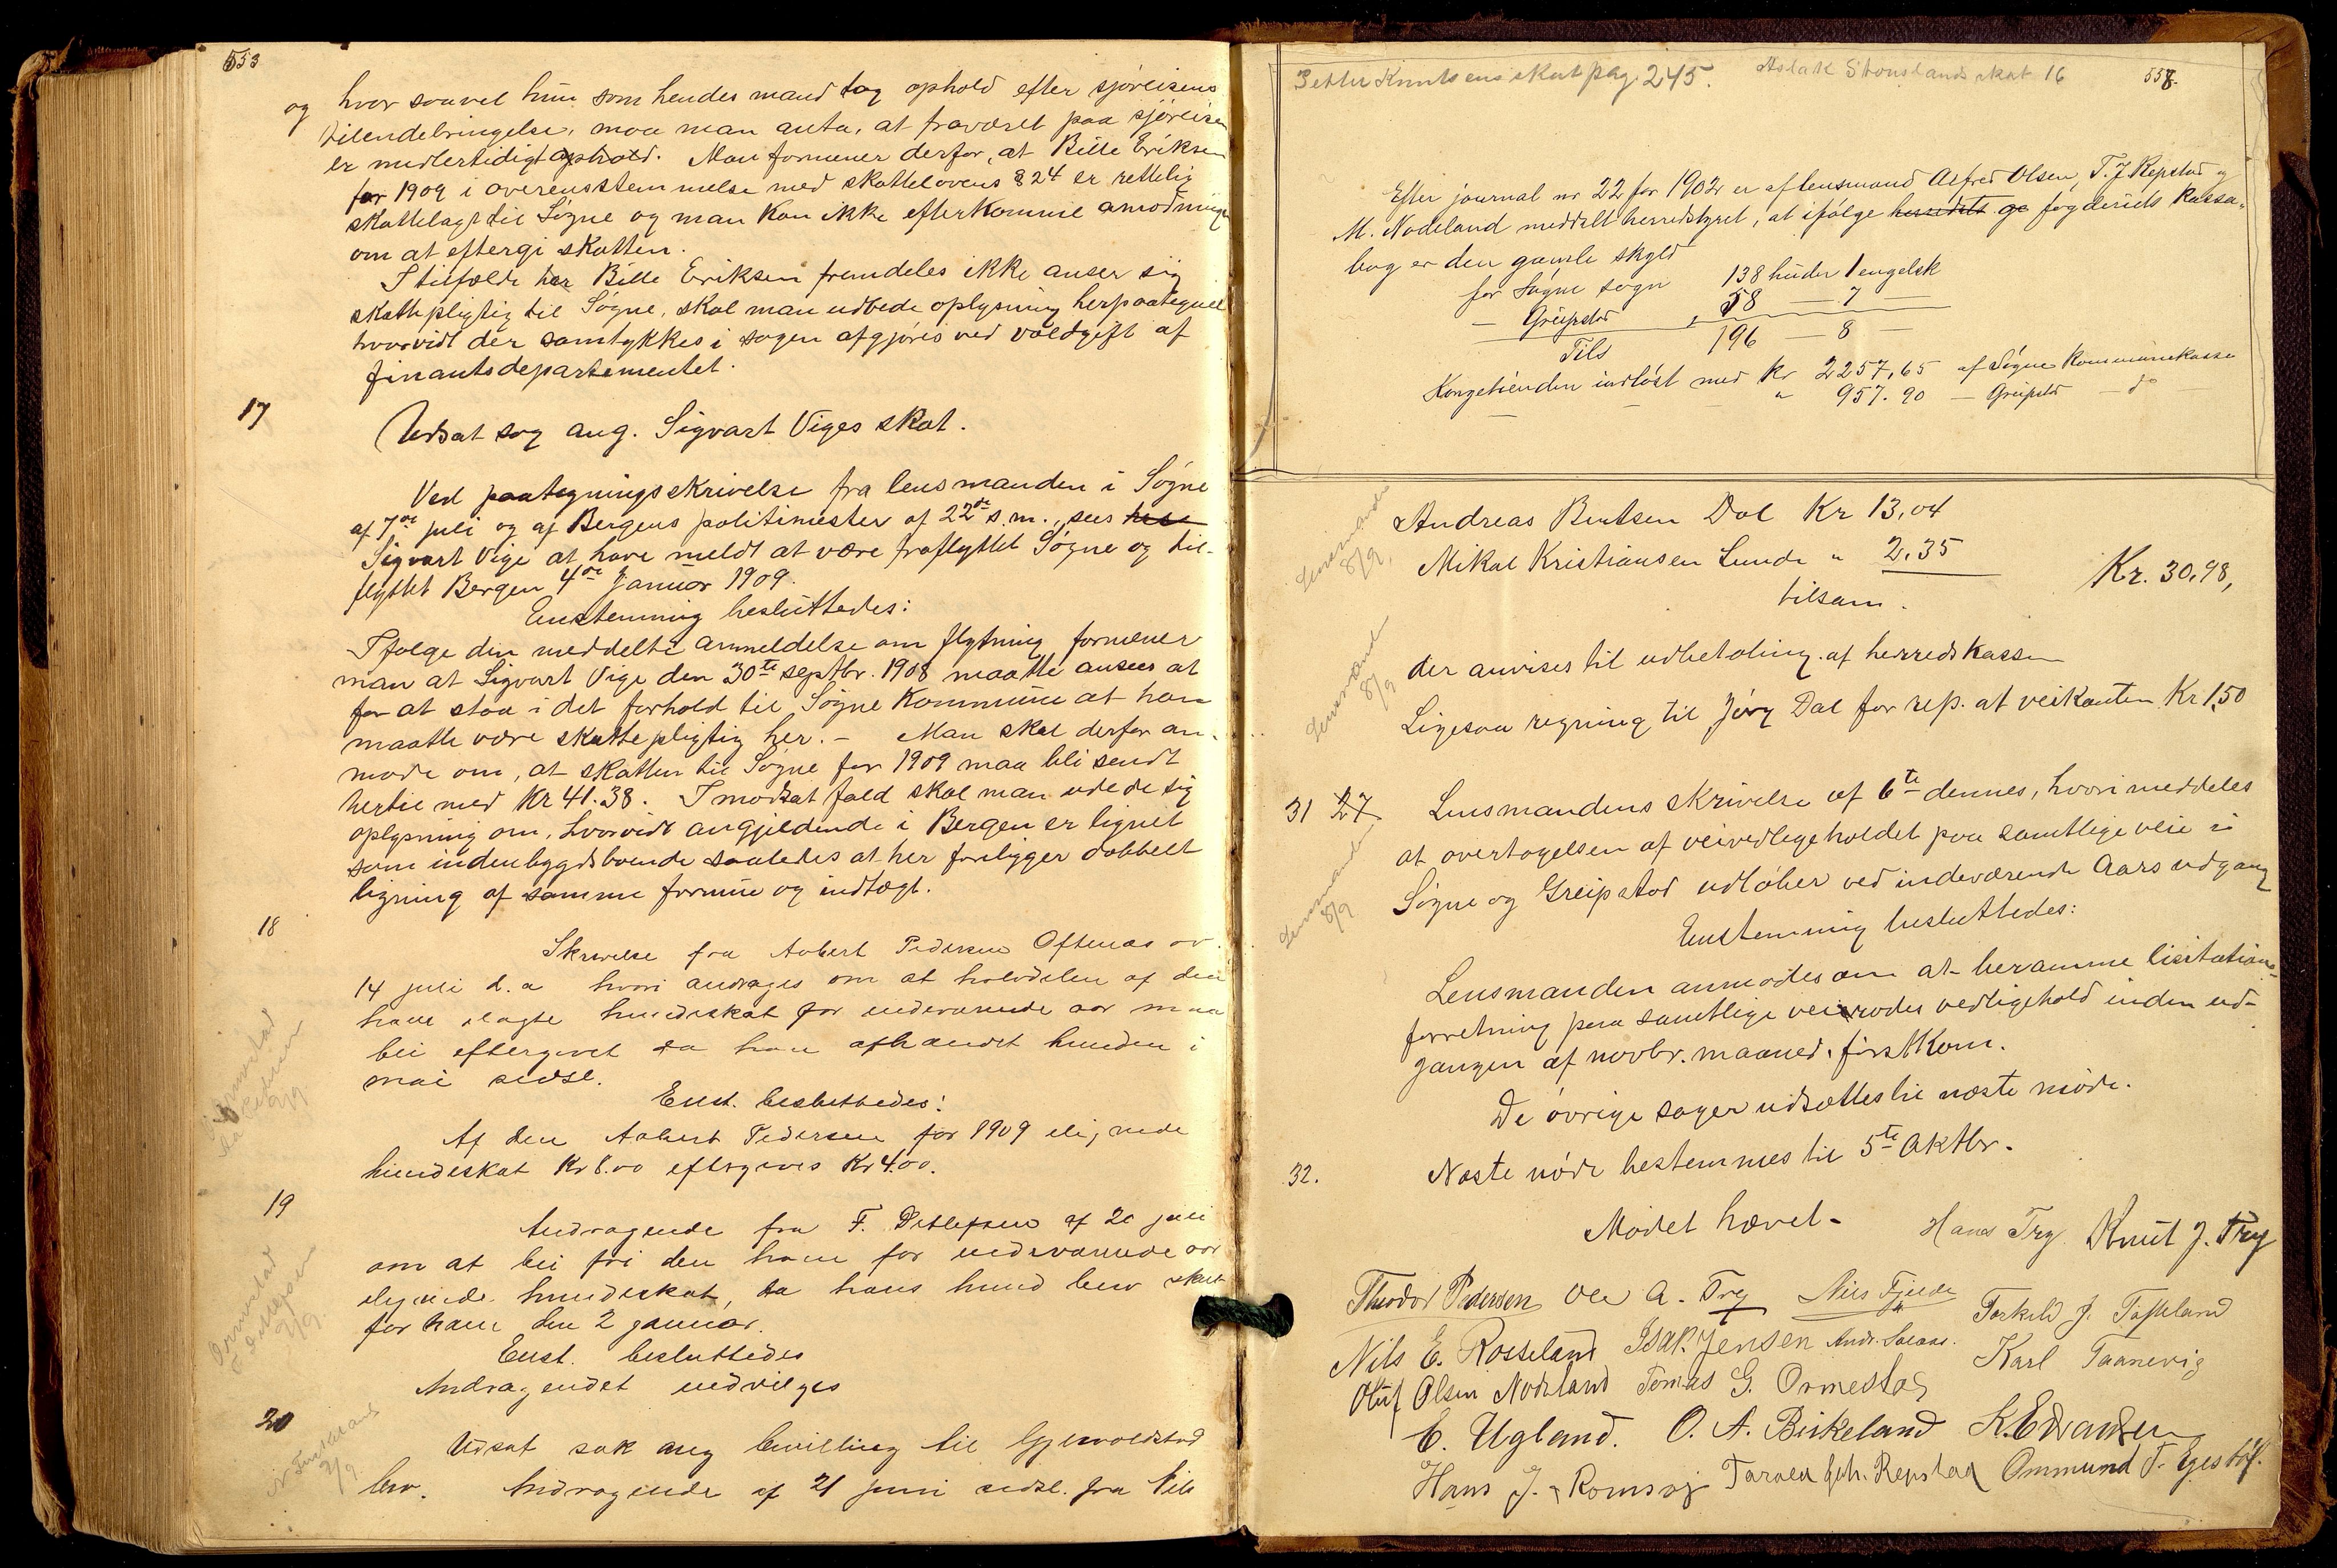 553
og hvor saavel hun som hendes mand tog ophold efter sjöreisens
tilendebringelse, maa man anta, at fraværet paa sjöreisen
er midlertidigt ophold. Man formener derfor, at Bille Eriksen
for 1909 i overensstemmelse med skattelovens § 24 er rettelig
skattelagt til Sögne og man kan ikke efterkomme anmodningen
om at eftergi skatten.
I tilfælde her Bille Eriksen fremdeles ikke anser sig
skattepligtig til Sögne, skal man udbede oplysning herpaategnet
hvorvidt der samtykkes i sagen afgjöres ved voldgift af
finantsdepartementet.
17
Udsat sag ang. Sigvart Viges skat.
Ved paategningsskrivelse fra lensmanden i Sögne
af 7de juli og af Bergens politimester af 22de s.m., sees
Sigvart Vige at have meldt at være fraflyttet Sögne og til-
flyttet Bergen 4de Januar 1909.
Enstemmig besluttedes:
Ifölge den meddelte anmeldelse om flytning formener
man at Sigvart Vige den 30te septbr. 1908 maatte ansees at
for at staa i det forhold til Sögne Kommune at han
maatte være skattepligtig her. - Man skal derfor an-
mode om, at skatten til Sögne for 1909 maa bli sendt
hertil med Kr 41.38. I modsat fald skal man udbede sig
oplysning om, hvorvidt angjeldende i Bergen er lignet
som indenbygdsboende saaledes at her foreligger dobbelt
ligning af samme formue og indtægt.
18
Skrivelse fra Aabert Pedersen Oftenæs av
14 juli d.a hvori andrages om at halvdelen af den
ham ilagte hundeskat for indeværende aar maa
bli eftergivet da han afhændet hunden i
mai sidstl.
Enst. besluttedes:
Af den Aabert Pedersen for 1909 ilignede
hundeskat Kr 8.00 eftergives Kr 4.00.
19
Andragende fra F. Detlefsen af 20 juli
om at bli fri den ham for indeværende aar
ilignede hundeskat, da hans hund blev skudt
for ham den 2 januar.
Enst. besluttedes
Andragendet indvilges
20
Udsat sak ang bevilling til Gjervoldstad
bro. Andragende af 21 juni sidstl. fra Nils
Petter Knutsens skat pag 245. Aslak Stouslands skat 16
557.
Efter journal nr 22 for 1902 er af lensmand Alfred Olsen, T. J. Repstad og
M. Nodeland meddelt herredstyret, at ifölge herredets og fogderiets kassa-
bog er den gamle skyld
for Sögne sogn 138 huder 1 engelsk
— Greipstad " 58 — 7 —
Tils 196 — 8 —
Kongetienden indlöst med Kr 2257,65 af Sögne Kommunekasse
— — " 957.90 — Greipstd — do
Andreas Bentsen Dal Kr 13,04
Mikal Kristiansen Lunde " 2,35
tilsam. Kr. 30,98,
der anvises til udbetaling af herredskassen
Ligesaa regning til Jörg Dal for rep. at veikanten Kr 1,50
Lensmanden
8/9
Lensmanden
8/9
31 27 Lensmandens skrivelse af 6te dennes, hvori meddeles
at overtagelsen af veivedligeholdet paa samtlige veie i
Sögne og Greipstad udlöber ved indeværende Aars udgang
Enstemmig besluttedes:
Lensmanden
8/9
Lensmanden anmodes om at beramme licitations-
forretning paa samtlige veirodes vedligehold inden ud-
gangen af novbr. maaned förstkom.
De övrige sager udsættes til næste möde.
32. Næste möde bestemmes til 5te Oktbr.
Mödet hævet -
Hans Try Knut J. Try
Theodor Pedersen Ole A. Try Nils Fjelde
Torkild J. Tofteland
Nils E. Rosseland Isak Jensen Andr. Salaas.
Karl Taanevig
Oluf Olsen Nodeland Tomas G. Ormestad
E. Ugland. O. A. Birkeland K. Edvardsen
Hans J. Romsøj Tarald Joh. Repstad Ommund T. Egestöl.